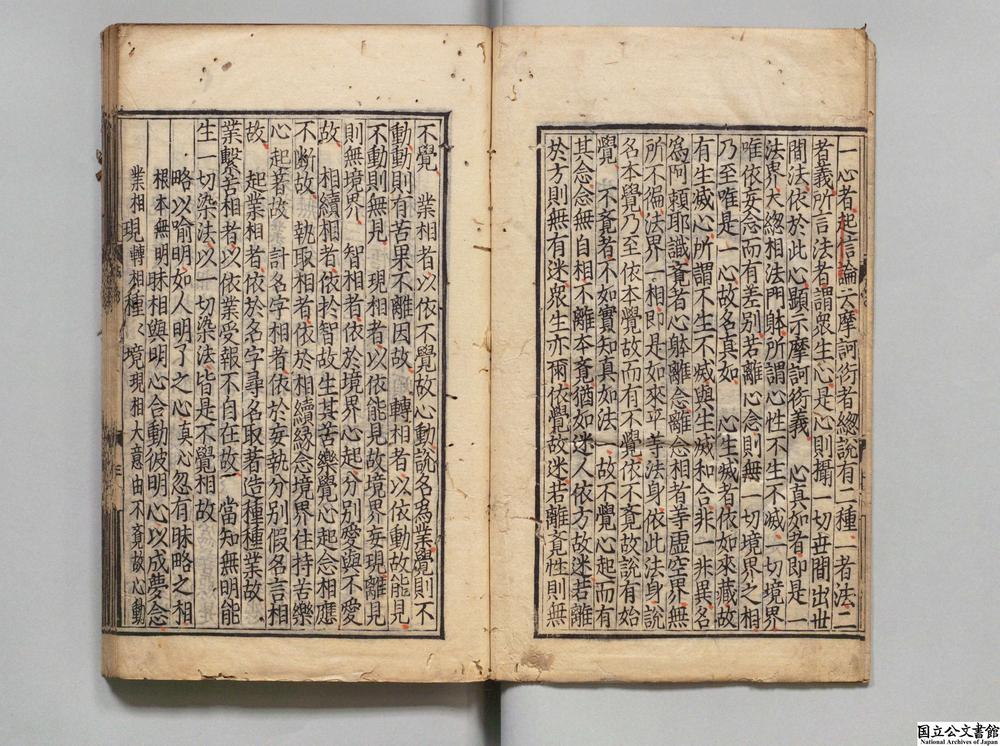 一心者起信論云摩訶衍者緫說有二種一者法二
者義所言法者謂眾生心是心則攝一切世間出世
間法依於此心顯示摩訶衍義 心真如者即是一
法界大緫相法門躰所謂心性不生不滅一切境界
唯依妄念而有差別若離心念則無一切境界之相
乃至唯是一心故名真如 心生滅者依如來藏故
有生滅心所謂不生不滅與生滅和合非一非異名
為阿賴耶識覺者心躰離念離念相者等虛空界無
所不徧法界一相即是如來平等法身依此法身說
名本覺乃至依本覺故而有不覺依不覺故說有始
覺 不覺者不如實知真如法一故不覺心起而有
其念念無自相不離本覺猶如迷人依方故迷若離
於方則無有迷眾生亦爾依覺故迷若離覺性則無
不覺 業相者以依不覺故心動說名為業覺則不
動動則有苦果不離因故 轉相者以依動故能見
不動則無見 現相者以依能見故境界妄現離見
則無境界 智相者依於境界心起分別愛與不愛
故 相續相者依於智故生其苦樂覺心起念相應
不断故 執取相者依於相續緣念境界住持苦樂
心起著故 計名字相者依於妄執分別假名言相
故 起業相者依於名字尋名取著造種種業故
業繫苦相者以依業受報不自在故 當知無明能
生一切染法以一切染法皆是不覺相故
略以喻明如人明了之心真心忽有昧略之相
根本無明昧相與明心合動彼明心以成夢念
業相現轉相種種境現相大意由不覺故心動
三
国立公文書館
National Archives of Japan